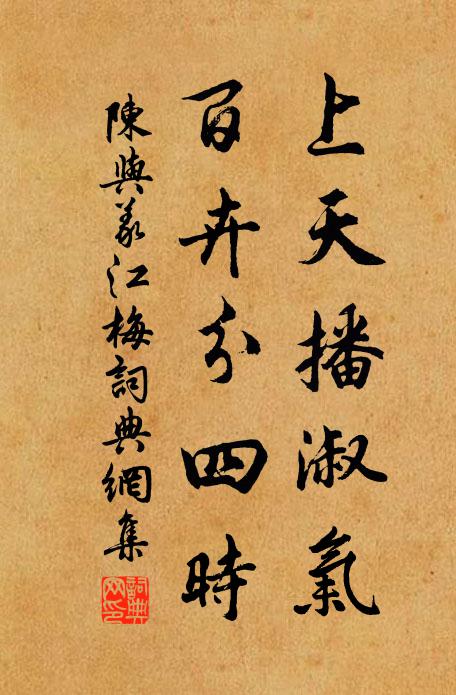 上天播淑氣
百卉分四時
陳與義江梅詞典網集
詞典網印